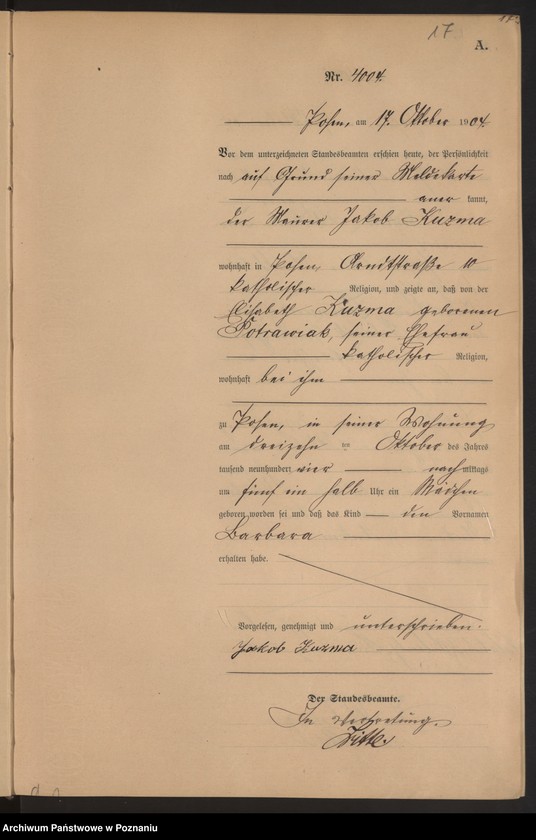 17
A.
Nr. 4004.
Posen, am 17. Oktober 1904.
Vor dem unterzeichneten Standesbeamten erschien heute, der Persönlichkeit
nach auf Grund seiner Meldekarte
aner kannt,
der Maurer Jakob Kuzma
wohnhaft in Posen, Arndtstraße 10
katholischer Religion, und zeigte an, daß von der
Elisabeth Kuzma geborenen
Potrawiak, seiner Ehefrau
katholischer Religion,
wohnhaft bei ihm
zu Posen, in seiner Wohnung
am dreizehn ten Oktober des Jahres
tausend neunhundert vier nach mittags
um fünf ein halb Uhr ein Mädchen
geboren worden sei und daß das Kind den Vornamen
Barbara
erhalten habe.
Vorgelesen, genehmigt und unterschrieben.
Jakob Kuzma
Der Standesbeamte.
In Vertretung.
Archiwum Państwowe w Poznaniu